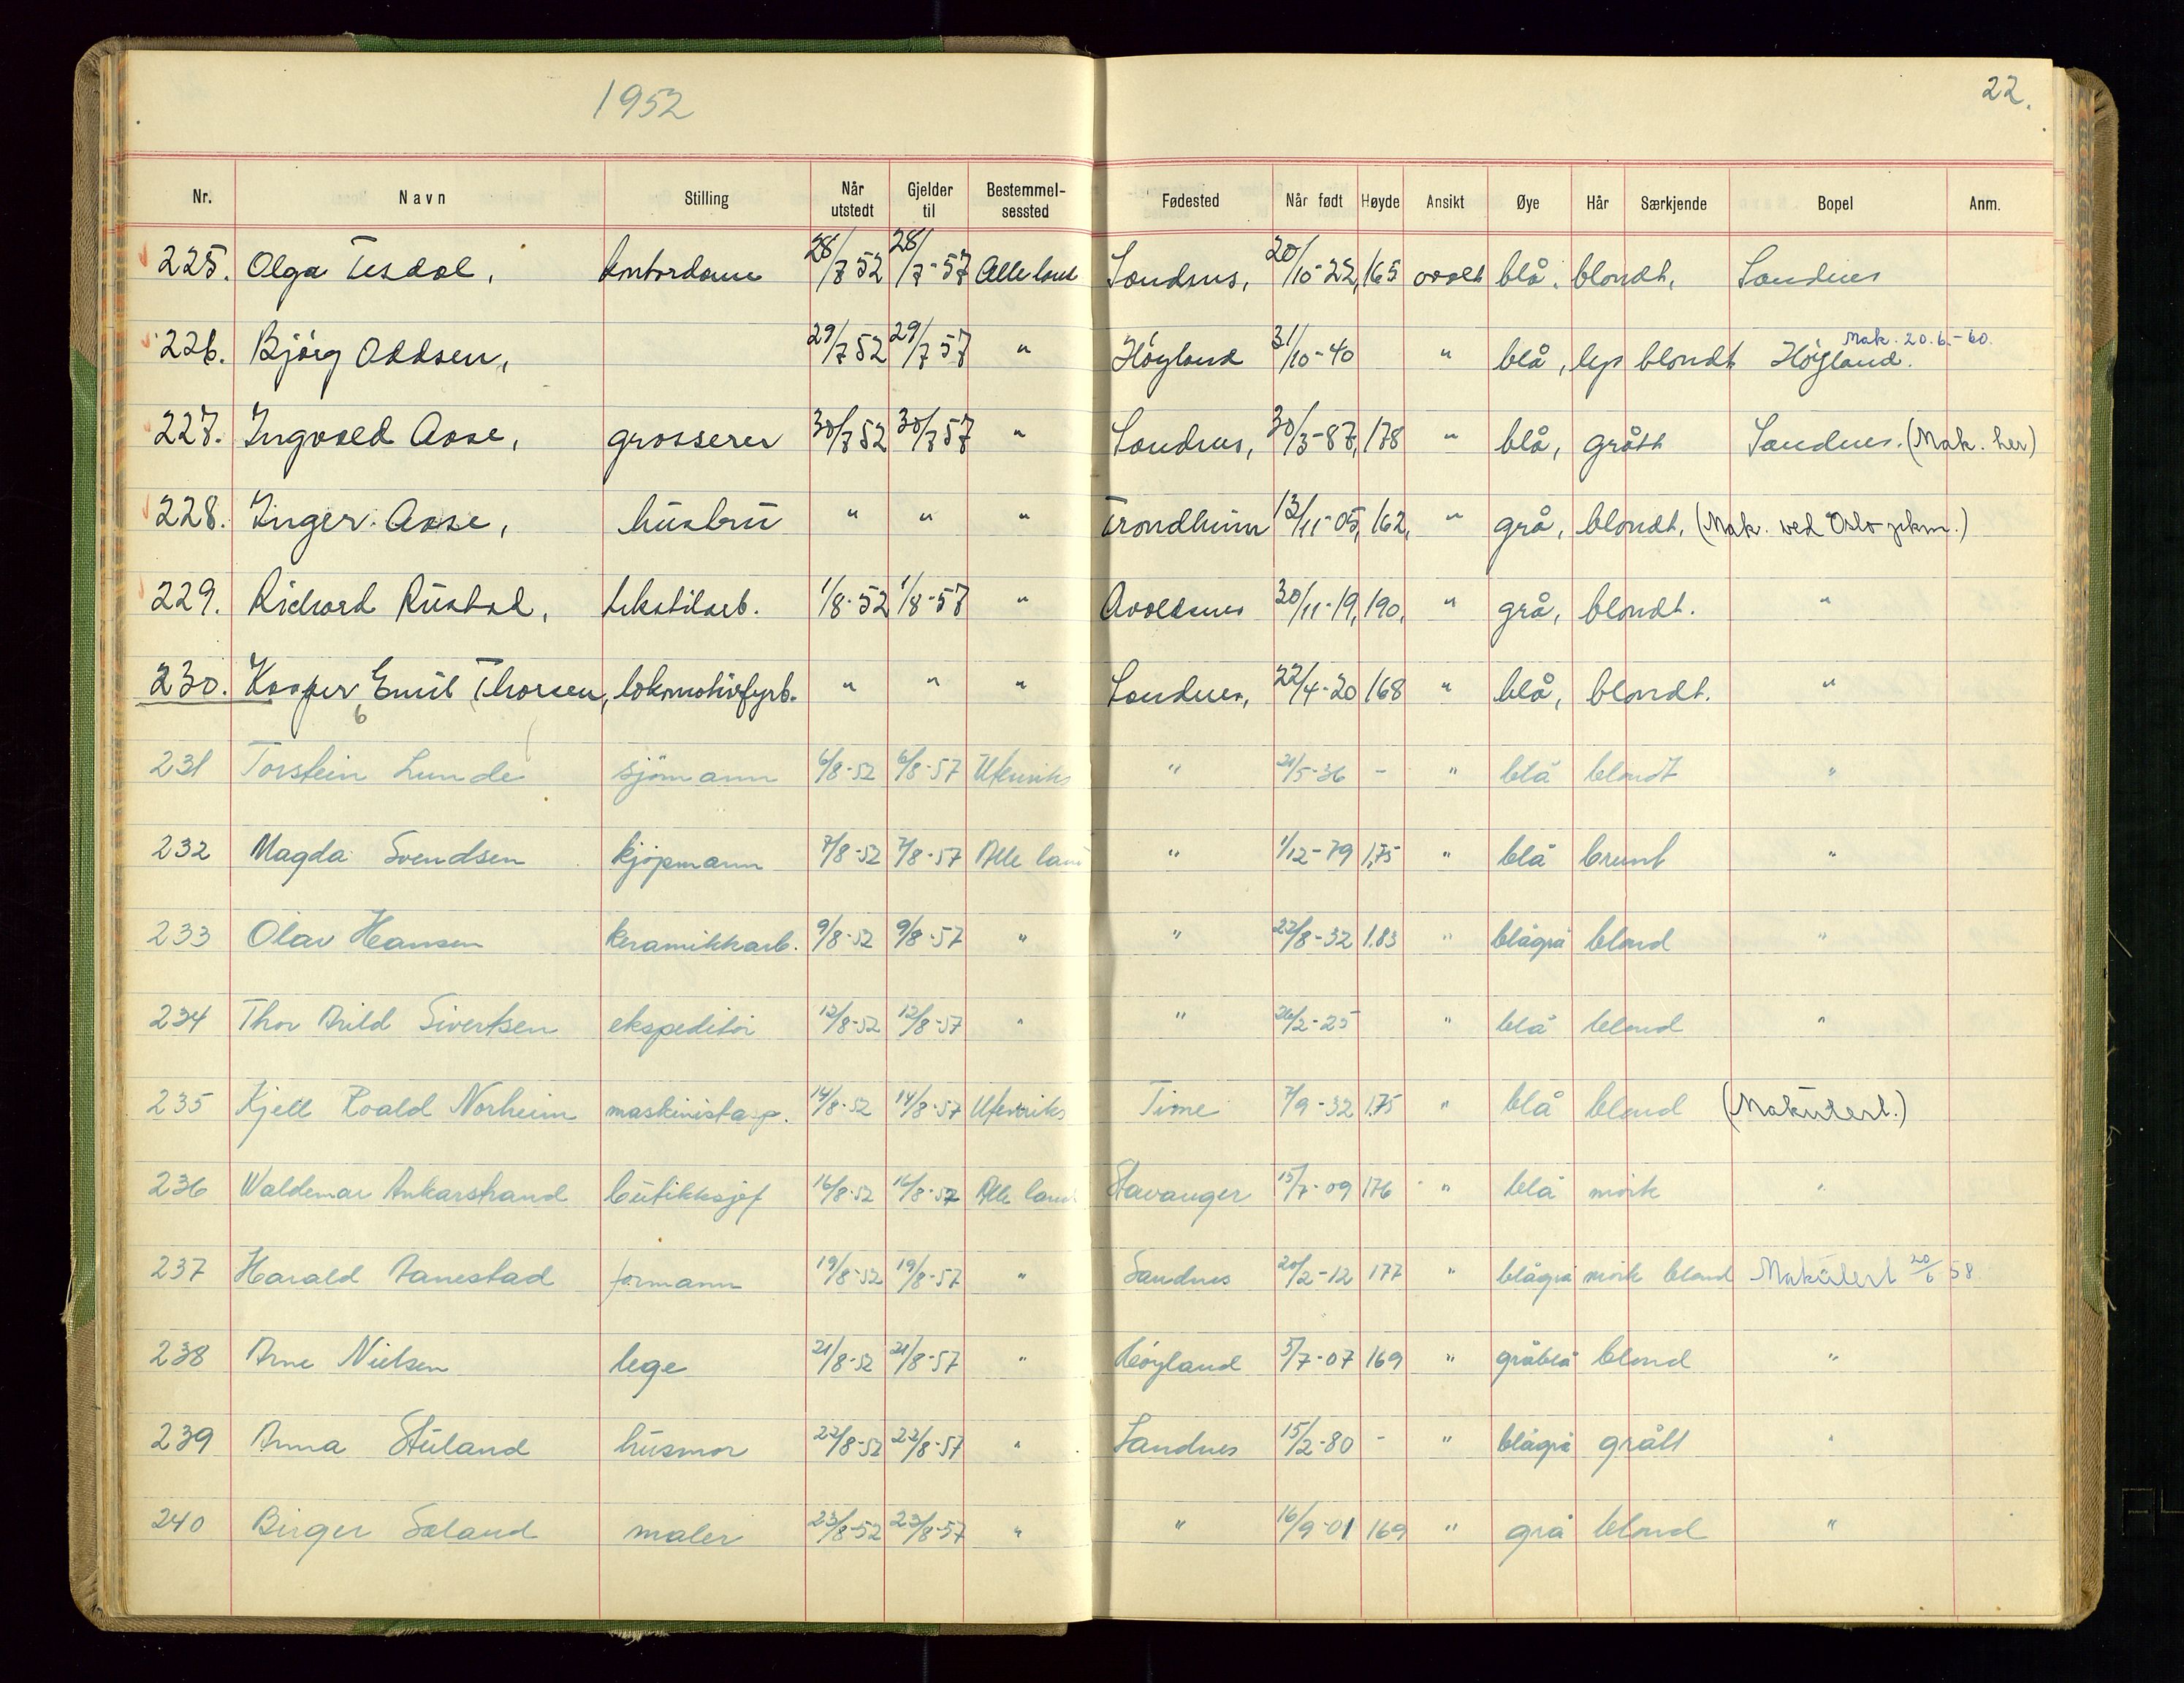 1952
22.
Nr. Navn Stilling Når utstedt Gjelder til Bestemmel-sessted Fødested Når født Høyde Ansikt Øye Hår Særkjende Bopel Anm.
225. Olga Tesdal, kontordame 28/7 52 28/7-57 Alle land Sandnes, 20/10-22, 165 ovalt blå, blondt, Sandnes
226. Bjørg Oddsen, 29/7 52 29/7 57 " Høyland 31/10-40 " blå, lys blondt Høyland. Mak. 20.6.-60.
227. Ingvald Aase, grosserer 30/7 52 30/7 57 " Sandnes, 30/3-87, 178 " blå, grått Sandnes. (Mak. her)
228. Inger Aase, hustru " " " Trondheim 13/11-05, 162, " grå, blondt, (Mak. ved Oslo pkm.)
229. Richard Rustad, tekstilarb. 1/8-52 1/8-57 " Avaldsnes 30/11-19, 190, " grå, blondt. "
230. Kasper Emil Thorsen, lokomotivfyrb. " " " Sandnes, 22/4-20 168 " blå, blondt. "
6
231 Torstein Lunde sjömann 6/8-52 6/8-57 Utenriks " 21/5-36 - " blå blondt "
232 Magda Svendsen kjöpmann 7/8-52 7/8-57 Alle land " 1/12-79 1,75 " blå brunt "
233 Olav Hansen keramikkarb. 9/8-52 9/8-57 " " 22/8-32 1.83 " blågrå blond "
234 Thor Arild Sivertsen ekspeditör 12/8-52 12/8-57 " " 26/2-25 " blå blond "
235 Kjell Roald Norheim maskinistasp. 14/8-52 14/8-57 Utenriks Time 7/9-32 1.75 " blå blond (Makulert.)
236 Waldemar Ankarstrand butikksjef 16/8-52 16/8-57 Alle land Stavanger 15/7-09 176 " blå mörk "
237 Harald Aanestad formann 19/8-52 19/8-57 " Sandnes 20/2-12 177 " blågrå mörk blond Makulert 20/6 58
238 Arne Nielsen lege 21/8-52 21/8-57 " Höyland 5/7-07 169 " gråblå blond "
239 Anna Stuland husmor 22/8-52 22/8-57 " Sandnes 15/2-80 - " blågrå grått "
240 Birger Sæland maler 23/8-52 23/8-57 " " 16/9-01 169 " grå blond "